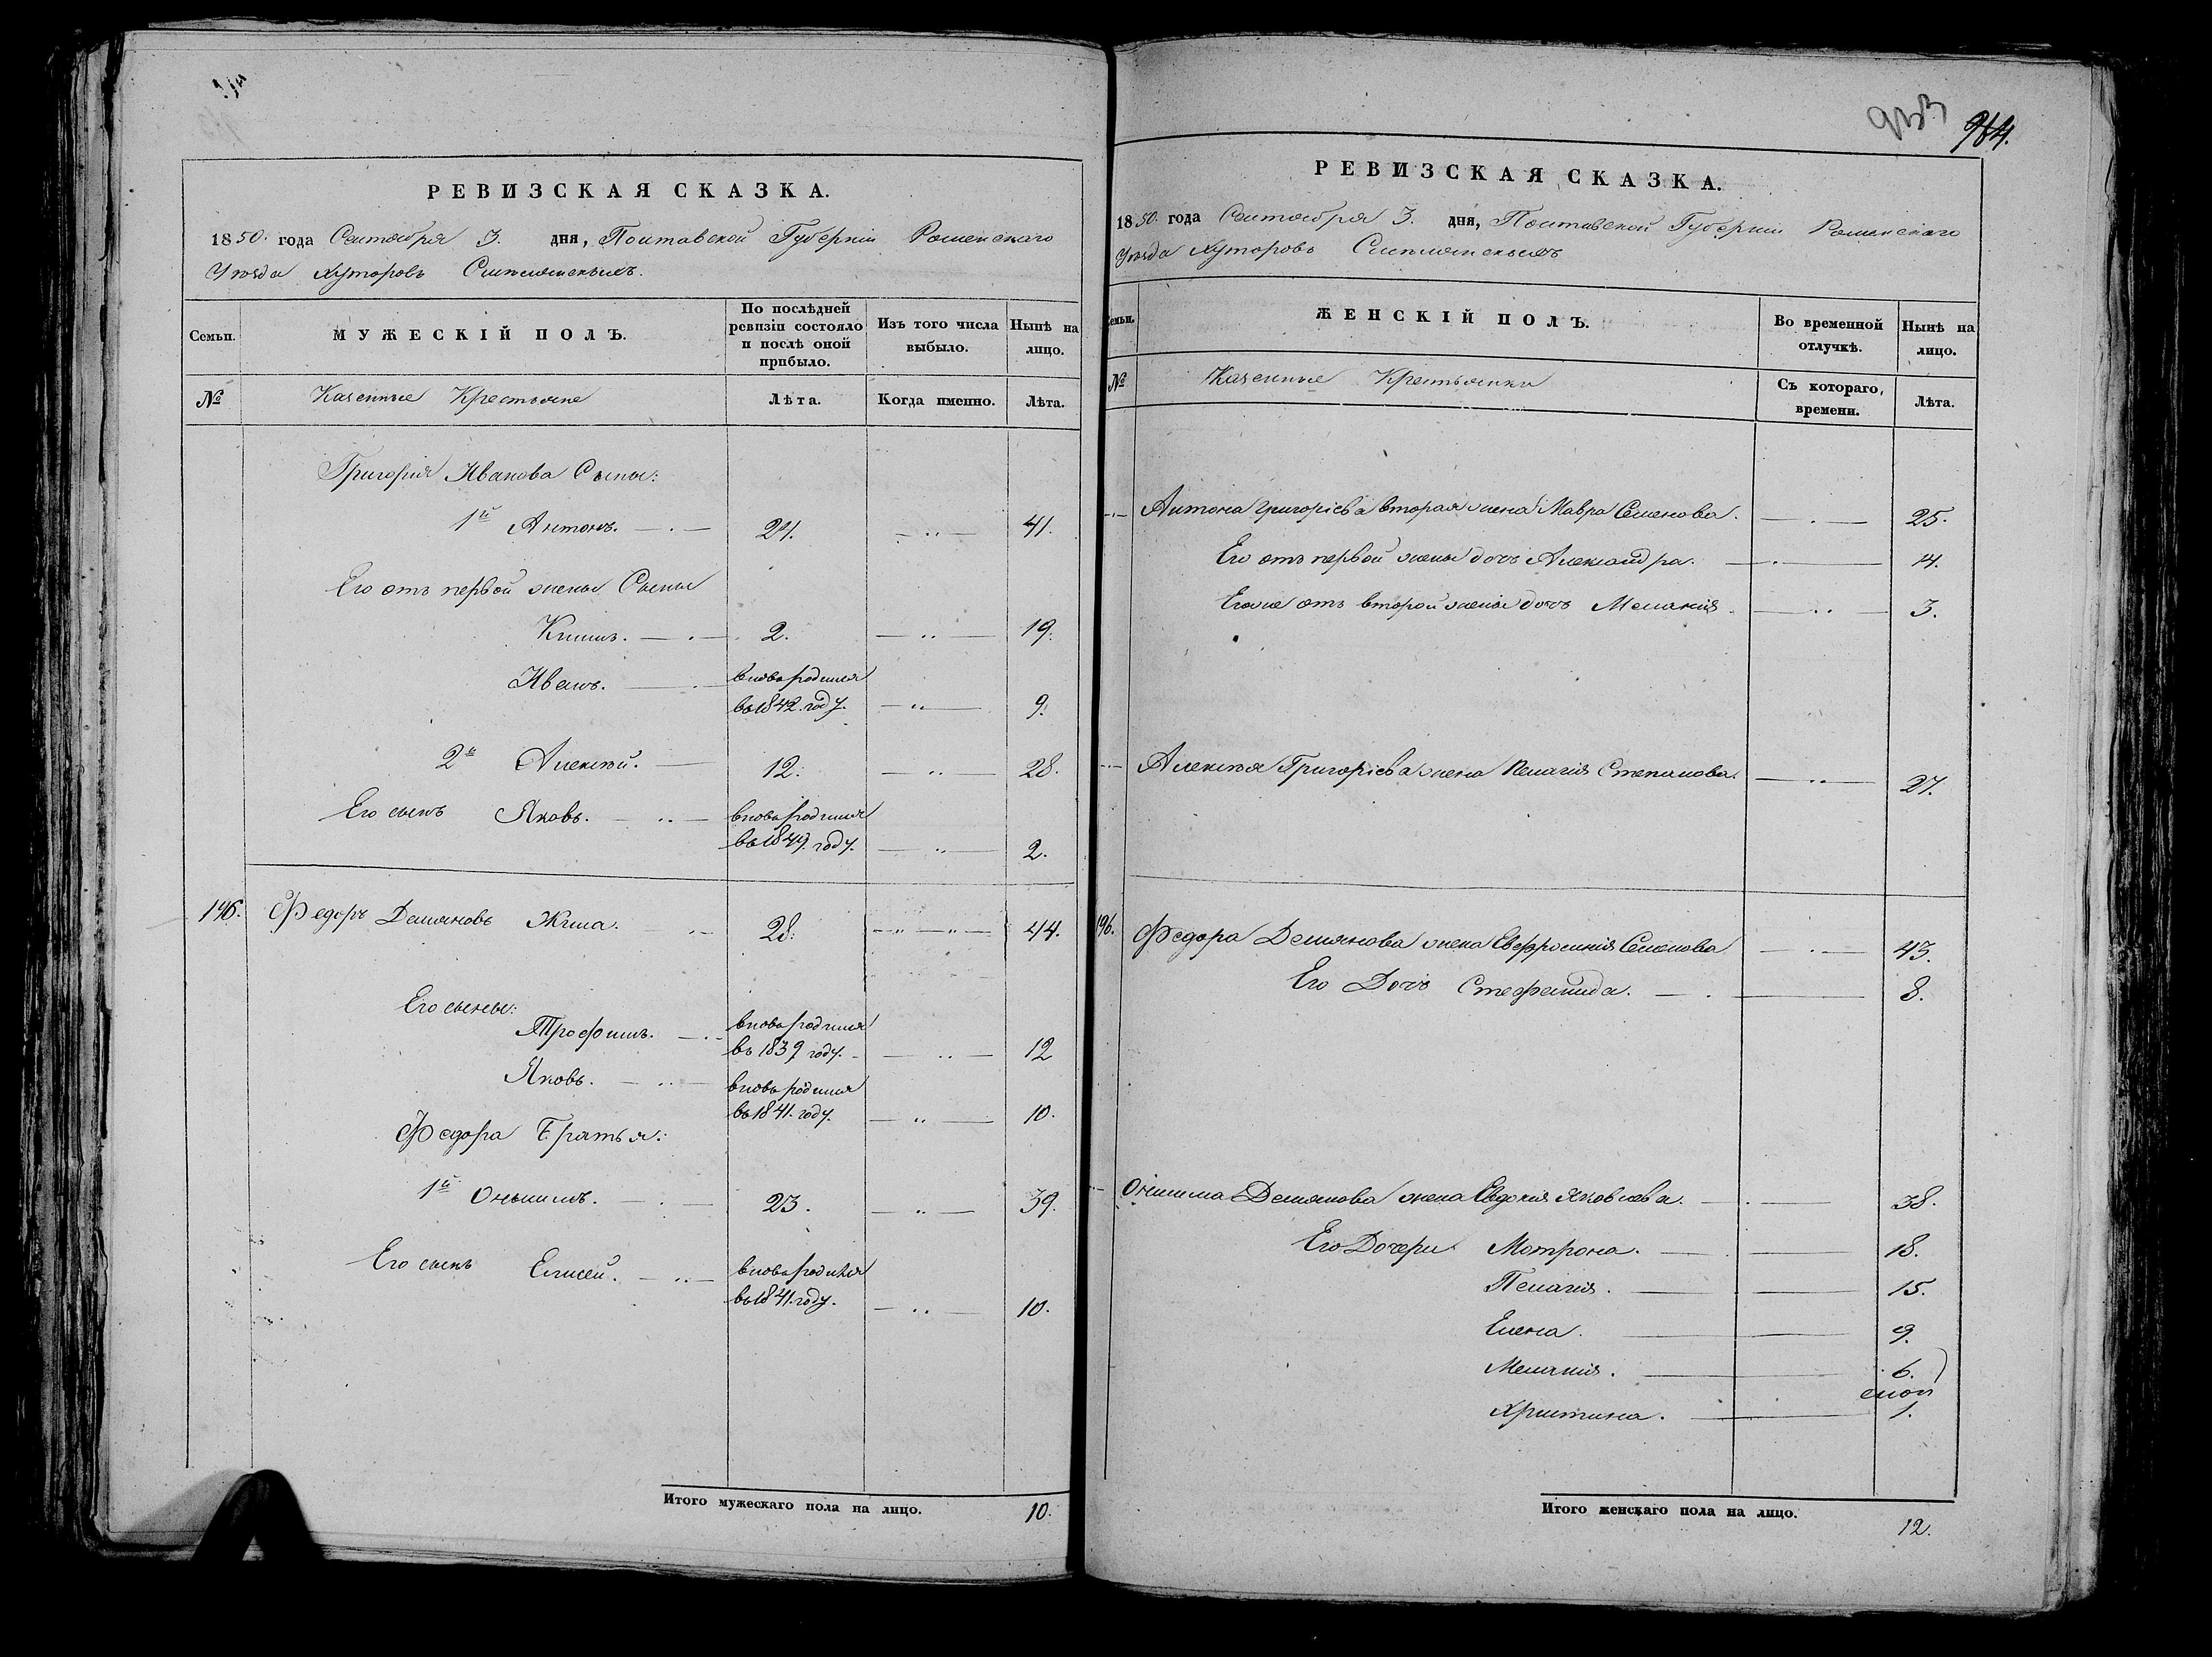 РЕВИЗСКАЯ СКАЗКА.
1850. года Сентября 3. дня, Полтавской Губерніи Роменскаго
Уѣзда хуторовъ
Семьи.
МУЖЕСКІЙ ПОЛЪ.
По послѣдней ревизіи состояло и послѣ оной прибыло.
Изъ того числа выбыло.
Нынѣ на лицо.
№
Казенные Крестьяне
Лѣта.
Когда именно.
Лѣта.
Григорія Иванова Сыны:
1й Антонъ. 24. 41.
Его отъ первой жены Сыны
Климъ. 2. 19.
Иванъ. вновь родился
въ 1842. году. 9.
2й Алексѣй. 12. 28.
Его сынъ Яковъ. вновь родился
въ 1849. году. 2.
196. Федоръ Демяновъ Жила. 28. 44.
Его сыны:
Трофимъ. вновь родился
въ 1839 году. 12
Яковъ. вновь родился
въ 1841. году. 10.
Федора Братья:
1й Онисимъ. 23. 39.
Его сынъ Елисей. вновь родился
въ 1841. году. 10.
Итого мужескаго пола на лицо. 10.
984.
РЕВИЗСКАЯ СКАЗКА.
1850. года Сентября 3. дня, Полтавской Губерніи Роменскаго
Уѣзда хуторовъ
Семьи.
ЖЕНСКІЙ ПОЛЪ.
Во временной отлучкѣ.
Нынѣ на лицо.
№
Казенные Крестьянки
Съ котораго, времени.
Лѣта.
Антона Григорієва вторая жена Мавра Семенова. 25.
Его отъ первой жены дочь Александра. 14.
Его же отъ второй жены дочь Меланія. 3.
Алексѣя Григорієва жена Пелагія Степанова. 27.
196. Федора Демянова жена Евфросинія Семенова 43.
Его Дочь Стефанида. 8.
Онисима Демянова жена Евдокія Яковлева. 38.
Его Дочери Мотрона. 18.
Пелагія. 15.
Елена. 9.
Меланія. 6.
Христина. 1.
Итого женскаго пола на лицо. 12.